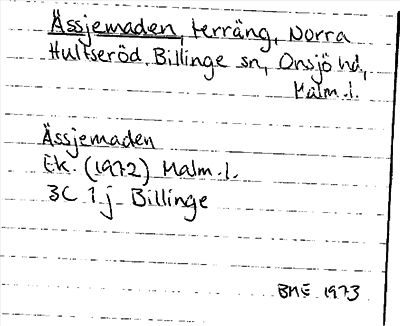 Ässjemaden, terräng, Norra
Hultseröd, Billinge sn, Onsjö hd,
Malm.l.
Ässjemaden
Ek. (1972) Malm.l.
3C 1j Billinge
BME 1973